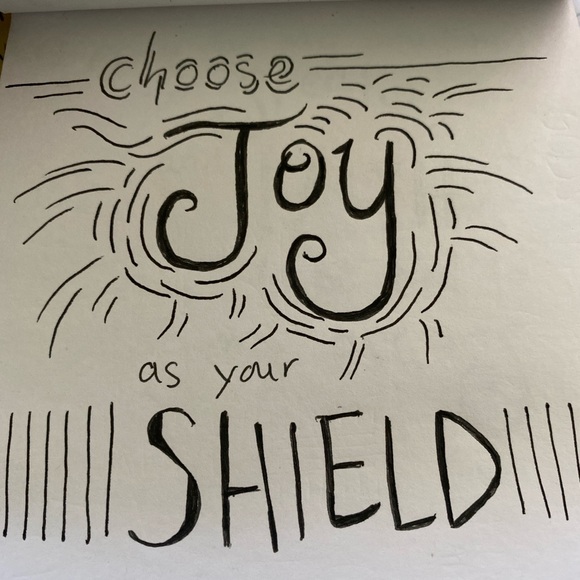 choose
Joy
as your
SHIELD